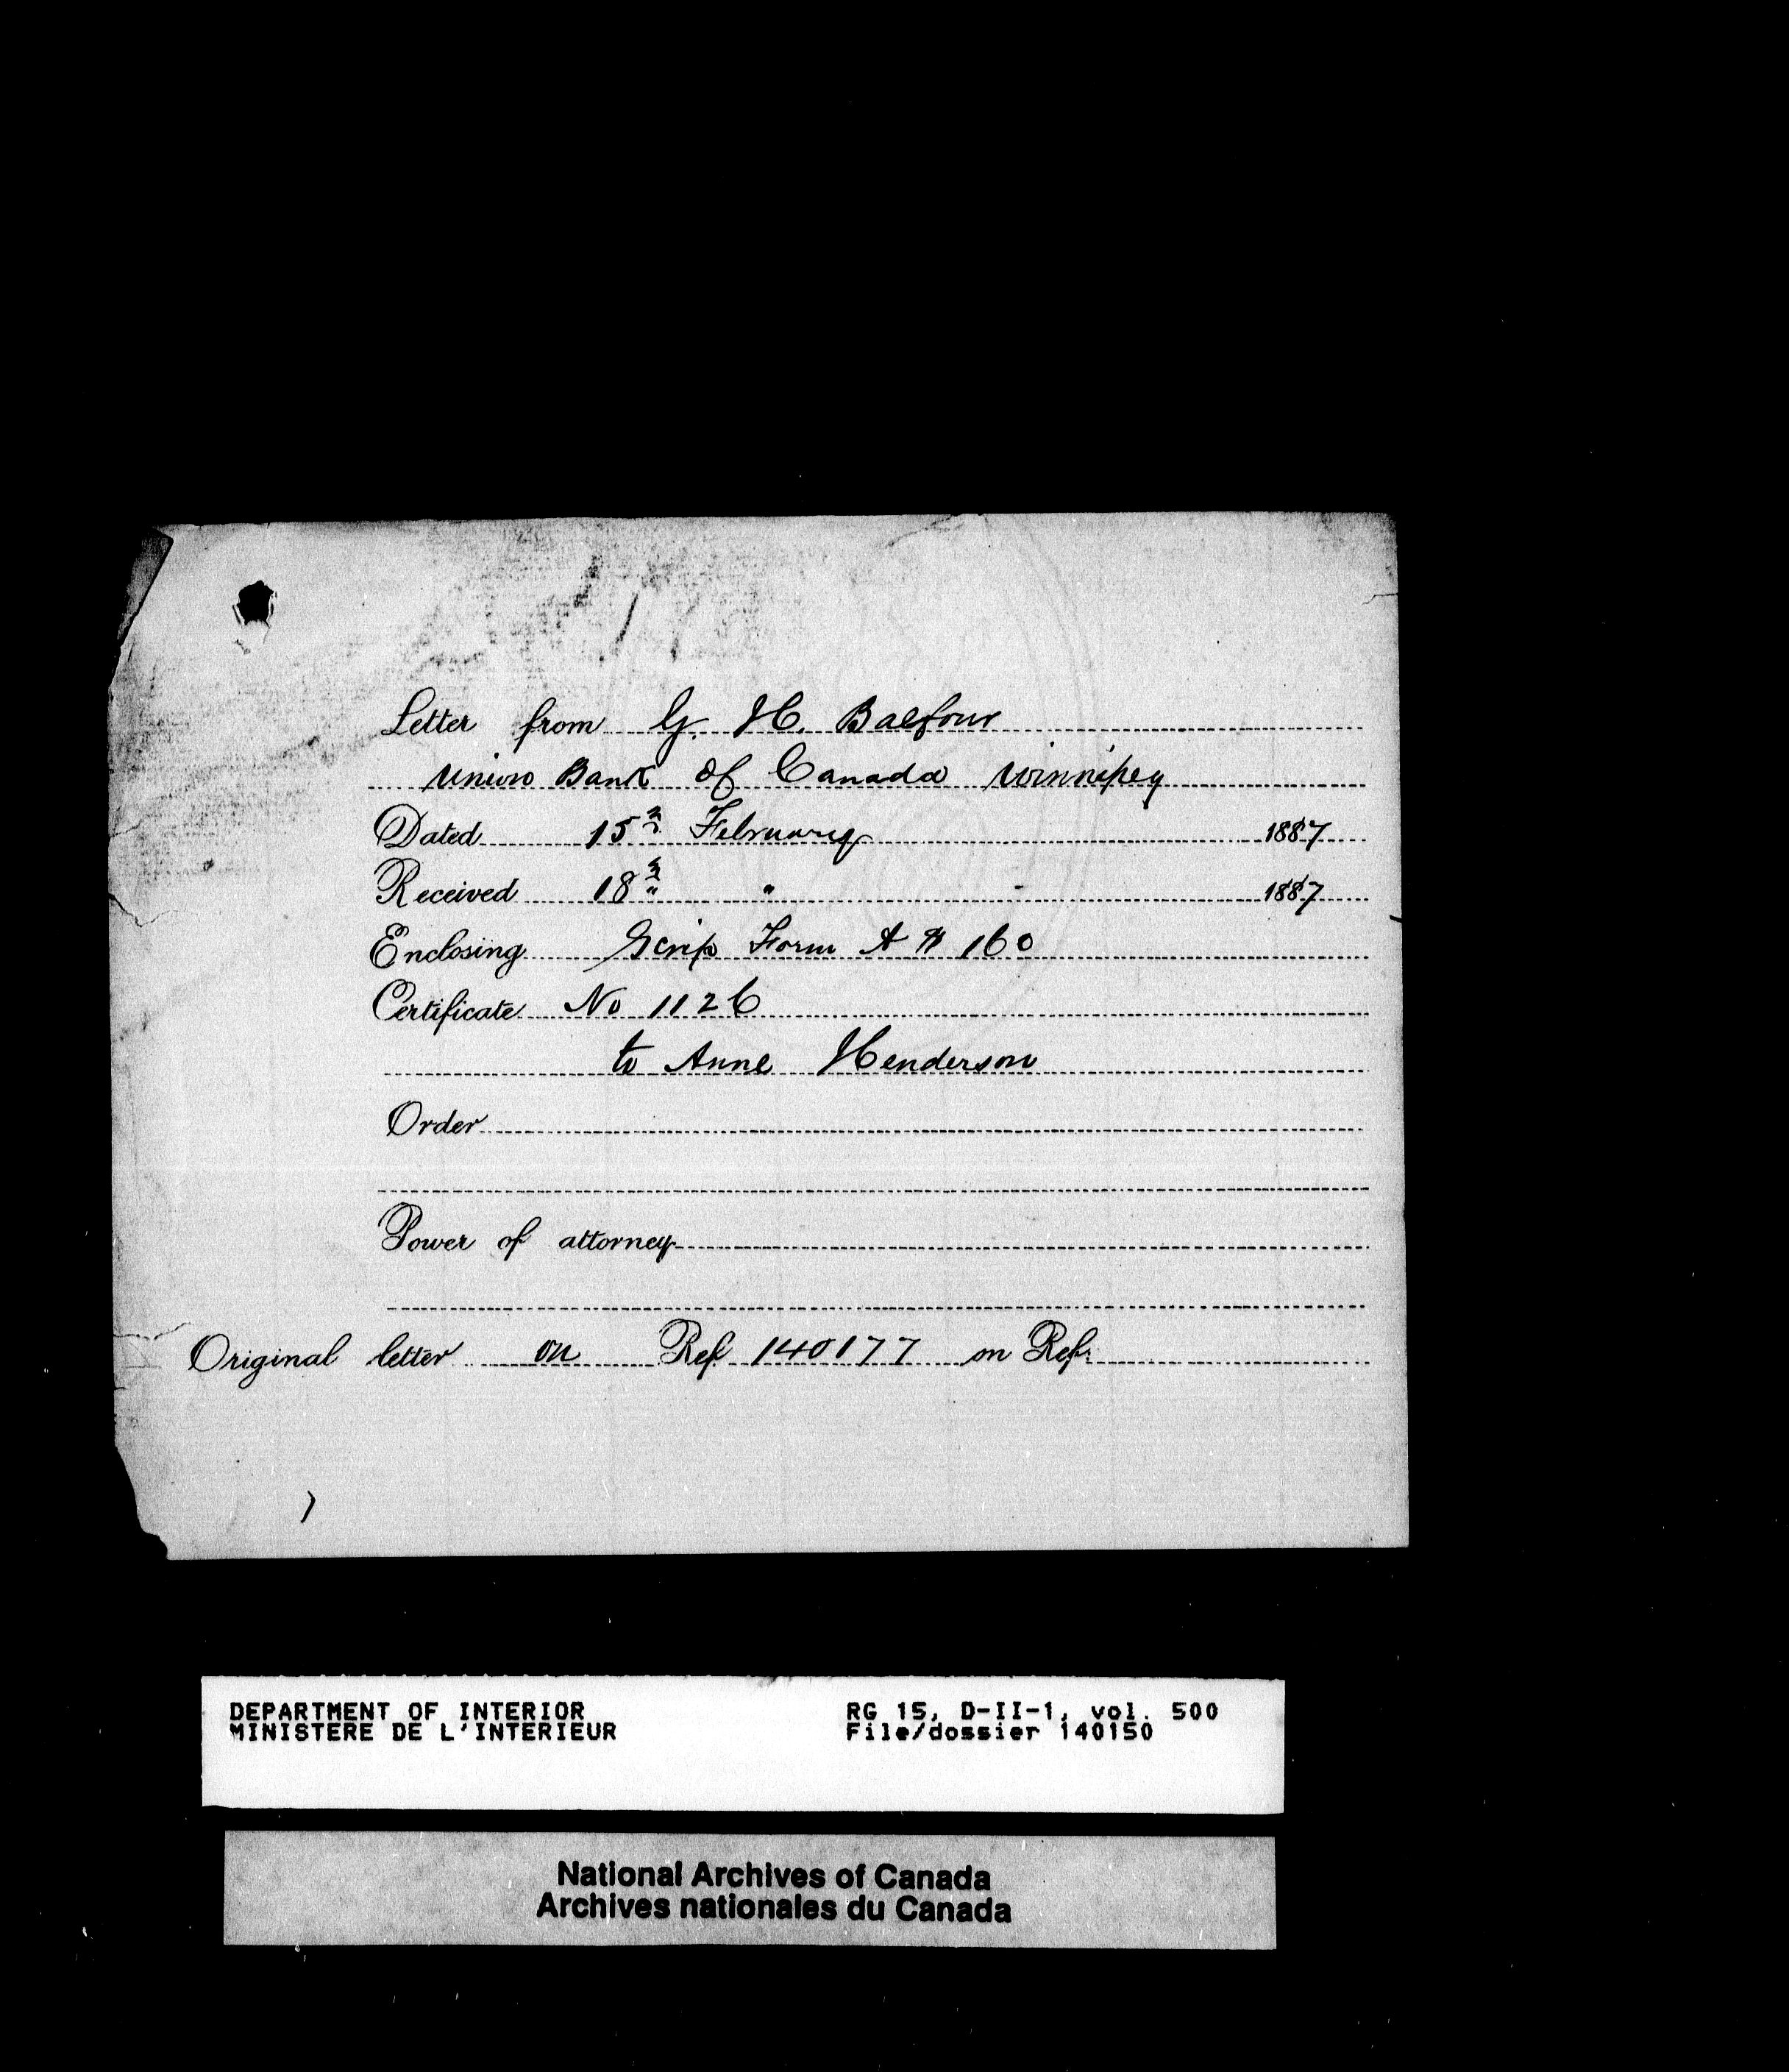 Letter from G. H. Balfour
Union Bank of Canada Winnipeg
Dated 15th February 1887
Received 18th " " 1887
Enclosing Scrip Form A $ 160
Certificate No 1126
to Anne Henderson
Order
Power of attorney
Original letter on Ref 140177 on Ref.
DEPARTMENT OF INTERIOR
MINISTERE DE L'INTERIEUR
RG 15, D-II-1, vol. 500
File/dossier 140150
National Archives of Canada
Archives nationales du Canada